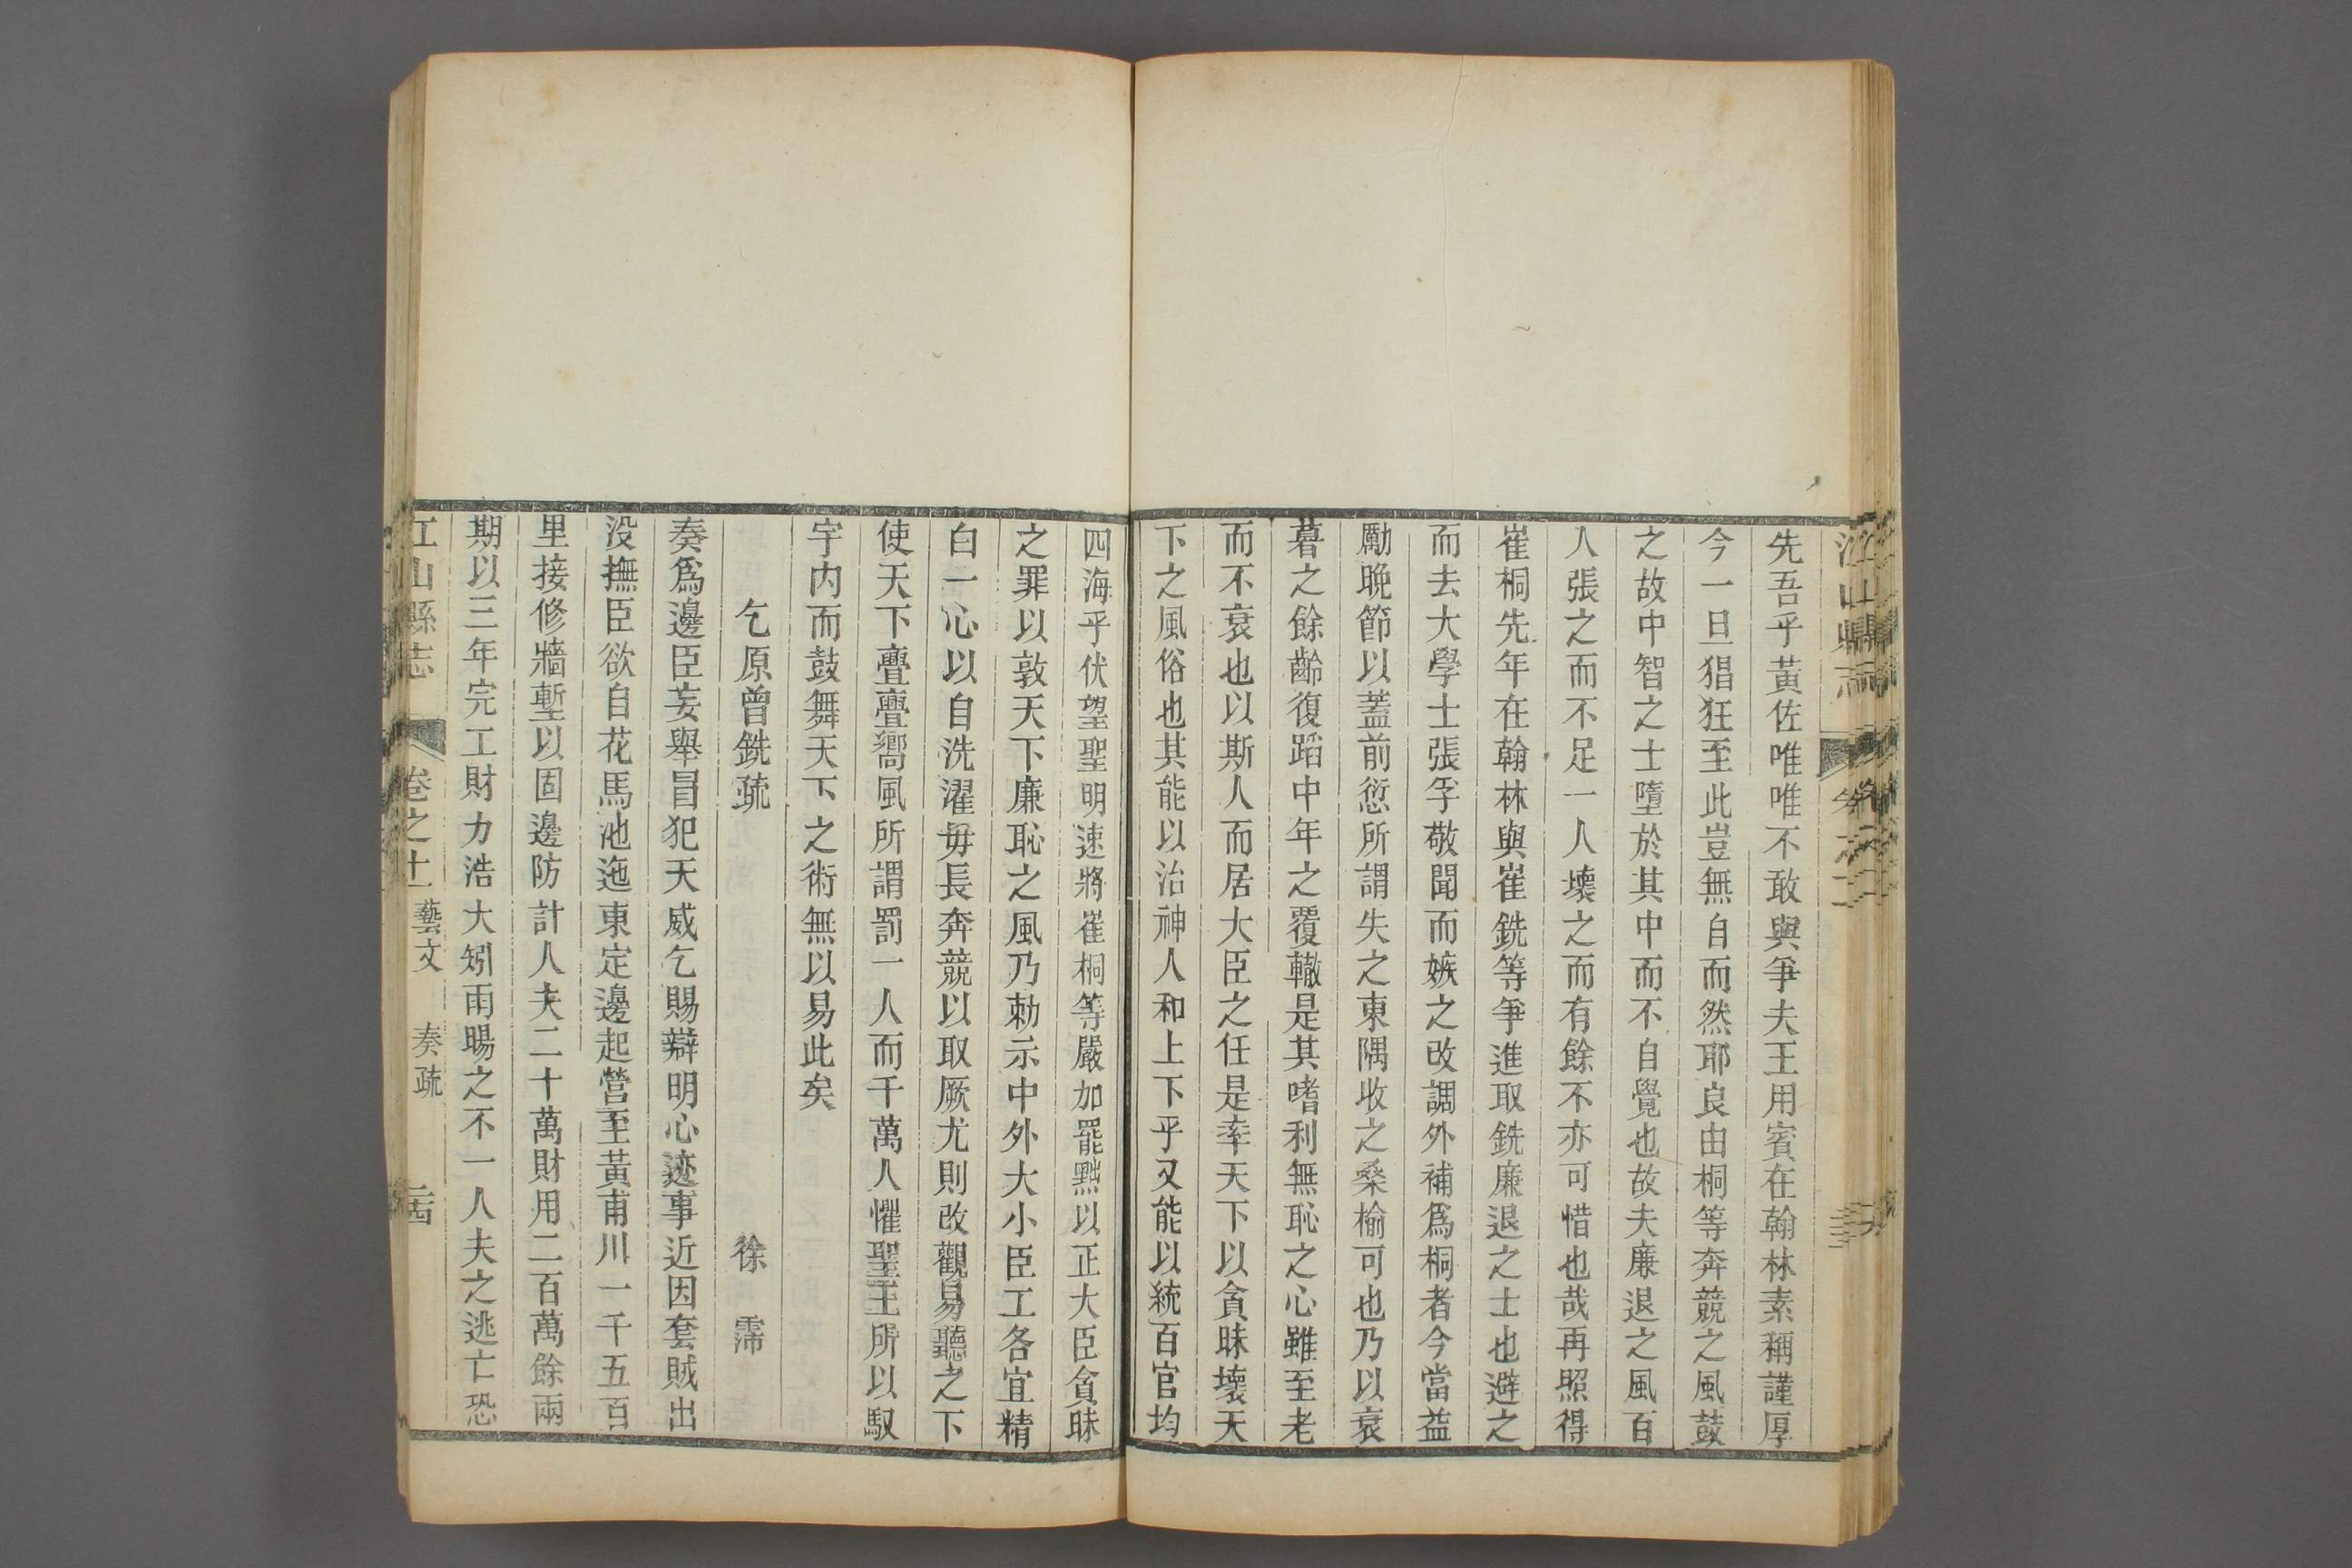 先吾乎黃佐唯唯不敢與爭夫王用賓在翰林素稱謹厚
今一旦猖狂至此豈無自而然耶良由桐等奔競之風鼓
之故中智之士墮於其中而不自覺也故夫廉退之風百
人張之而不足一人壞之而有餘不亦可惜也哉再照得
崔桐先年在翰林與崔銑等爭進取銑廉退之士也避之
而去大學士張孚敬聞而嫉之改調外補爲桐者今當益
勵晩節以蓋前愆所謂失之東隅收之桑榆可也乃以衰
暮之餘齡復蹈中年之覆轍是其嗜利無恥之心雖至老
而不衰也以斯人而居大臣之任是率天下以貪昧壞天
下之風俗也其能以治神人和上下乎又能以統百官均
四海乎伏望聖明速將崔桐等嚴加罷黜以正大臣貪昧
之罪以敦天下廉恥之風乃勅示中外大小臣工各宜精
白一心以自洗濯毋長奔競以取厥尤則改觀易聽之下
使天下亹亹嚮風所謂罰一人而千萬人懼聖王所以馭
宇内而鼓舞天下之術無以易此矣
乞原曾銑疏 徐霈
奏爲邊臣妄舉冒犯天威乞賜辯明心迹事近因套賊出
没撫臣欲自花馬池迤東定邊起營至黃甫川一千五百
里接修牆塹以固邊防計人夫二十萬財用二百萬餘兩
期以三年完工財力浩大矧雨暘之不一人夫之逃亡恐
江山縣志 卷之十一 藝文 奏疏 二十四